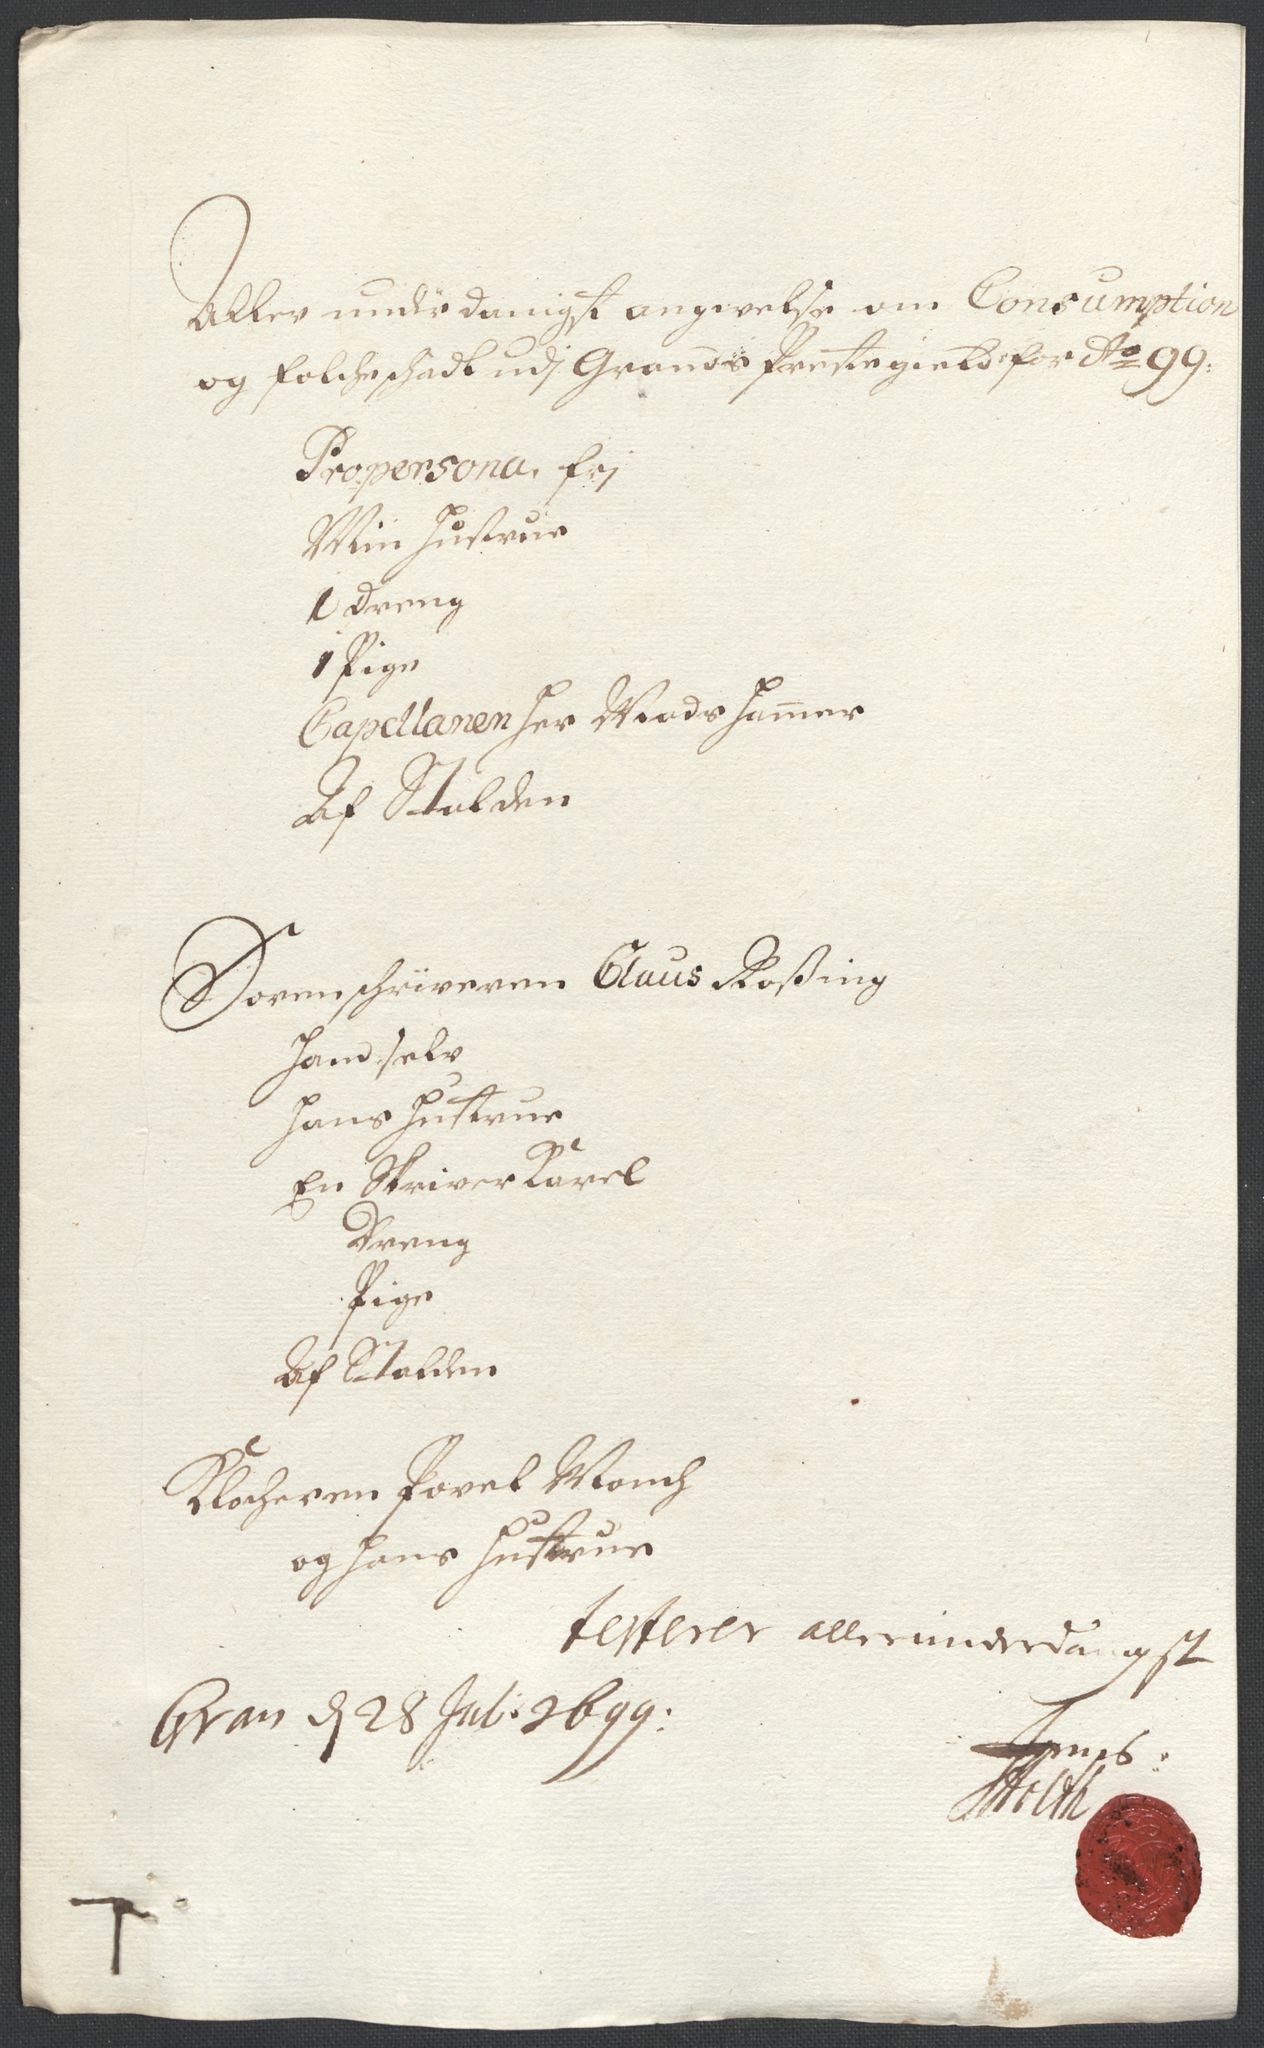 Aller underdanigst angivelse om Consumption
og folcheschadt udj Grands Prestegield for Ao 99:
Pro persona, frj
Min hustrue
1 dreng
1 Pige
Capellanen her Mads hamer
Af Stalden
Sorenschriveren Claus Roßing
hand selv
hans hustrue
En Skriver Karel
Dreng
Pige
Af Stalden
Klocheren Povel Monch
og hans hustrue
testerer allerunderdanigst
Gran d 28 Juli 1699: